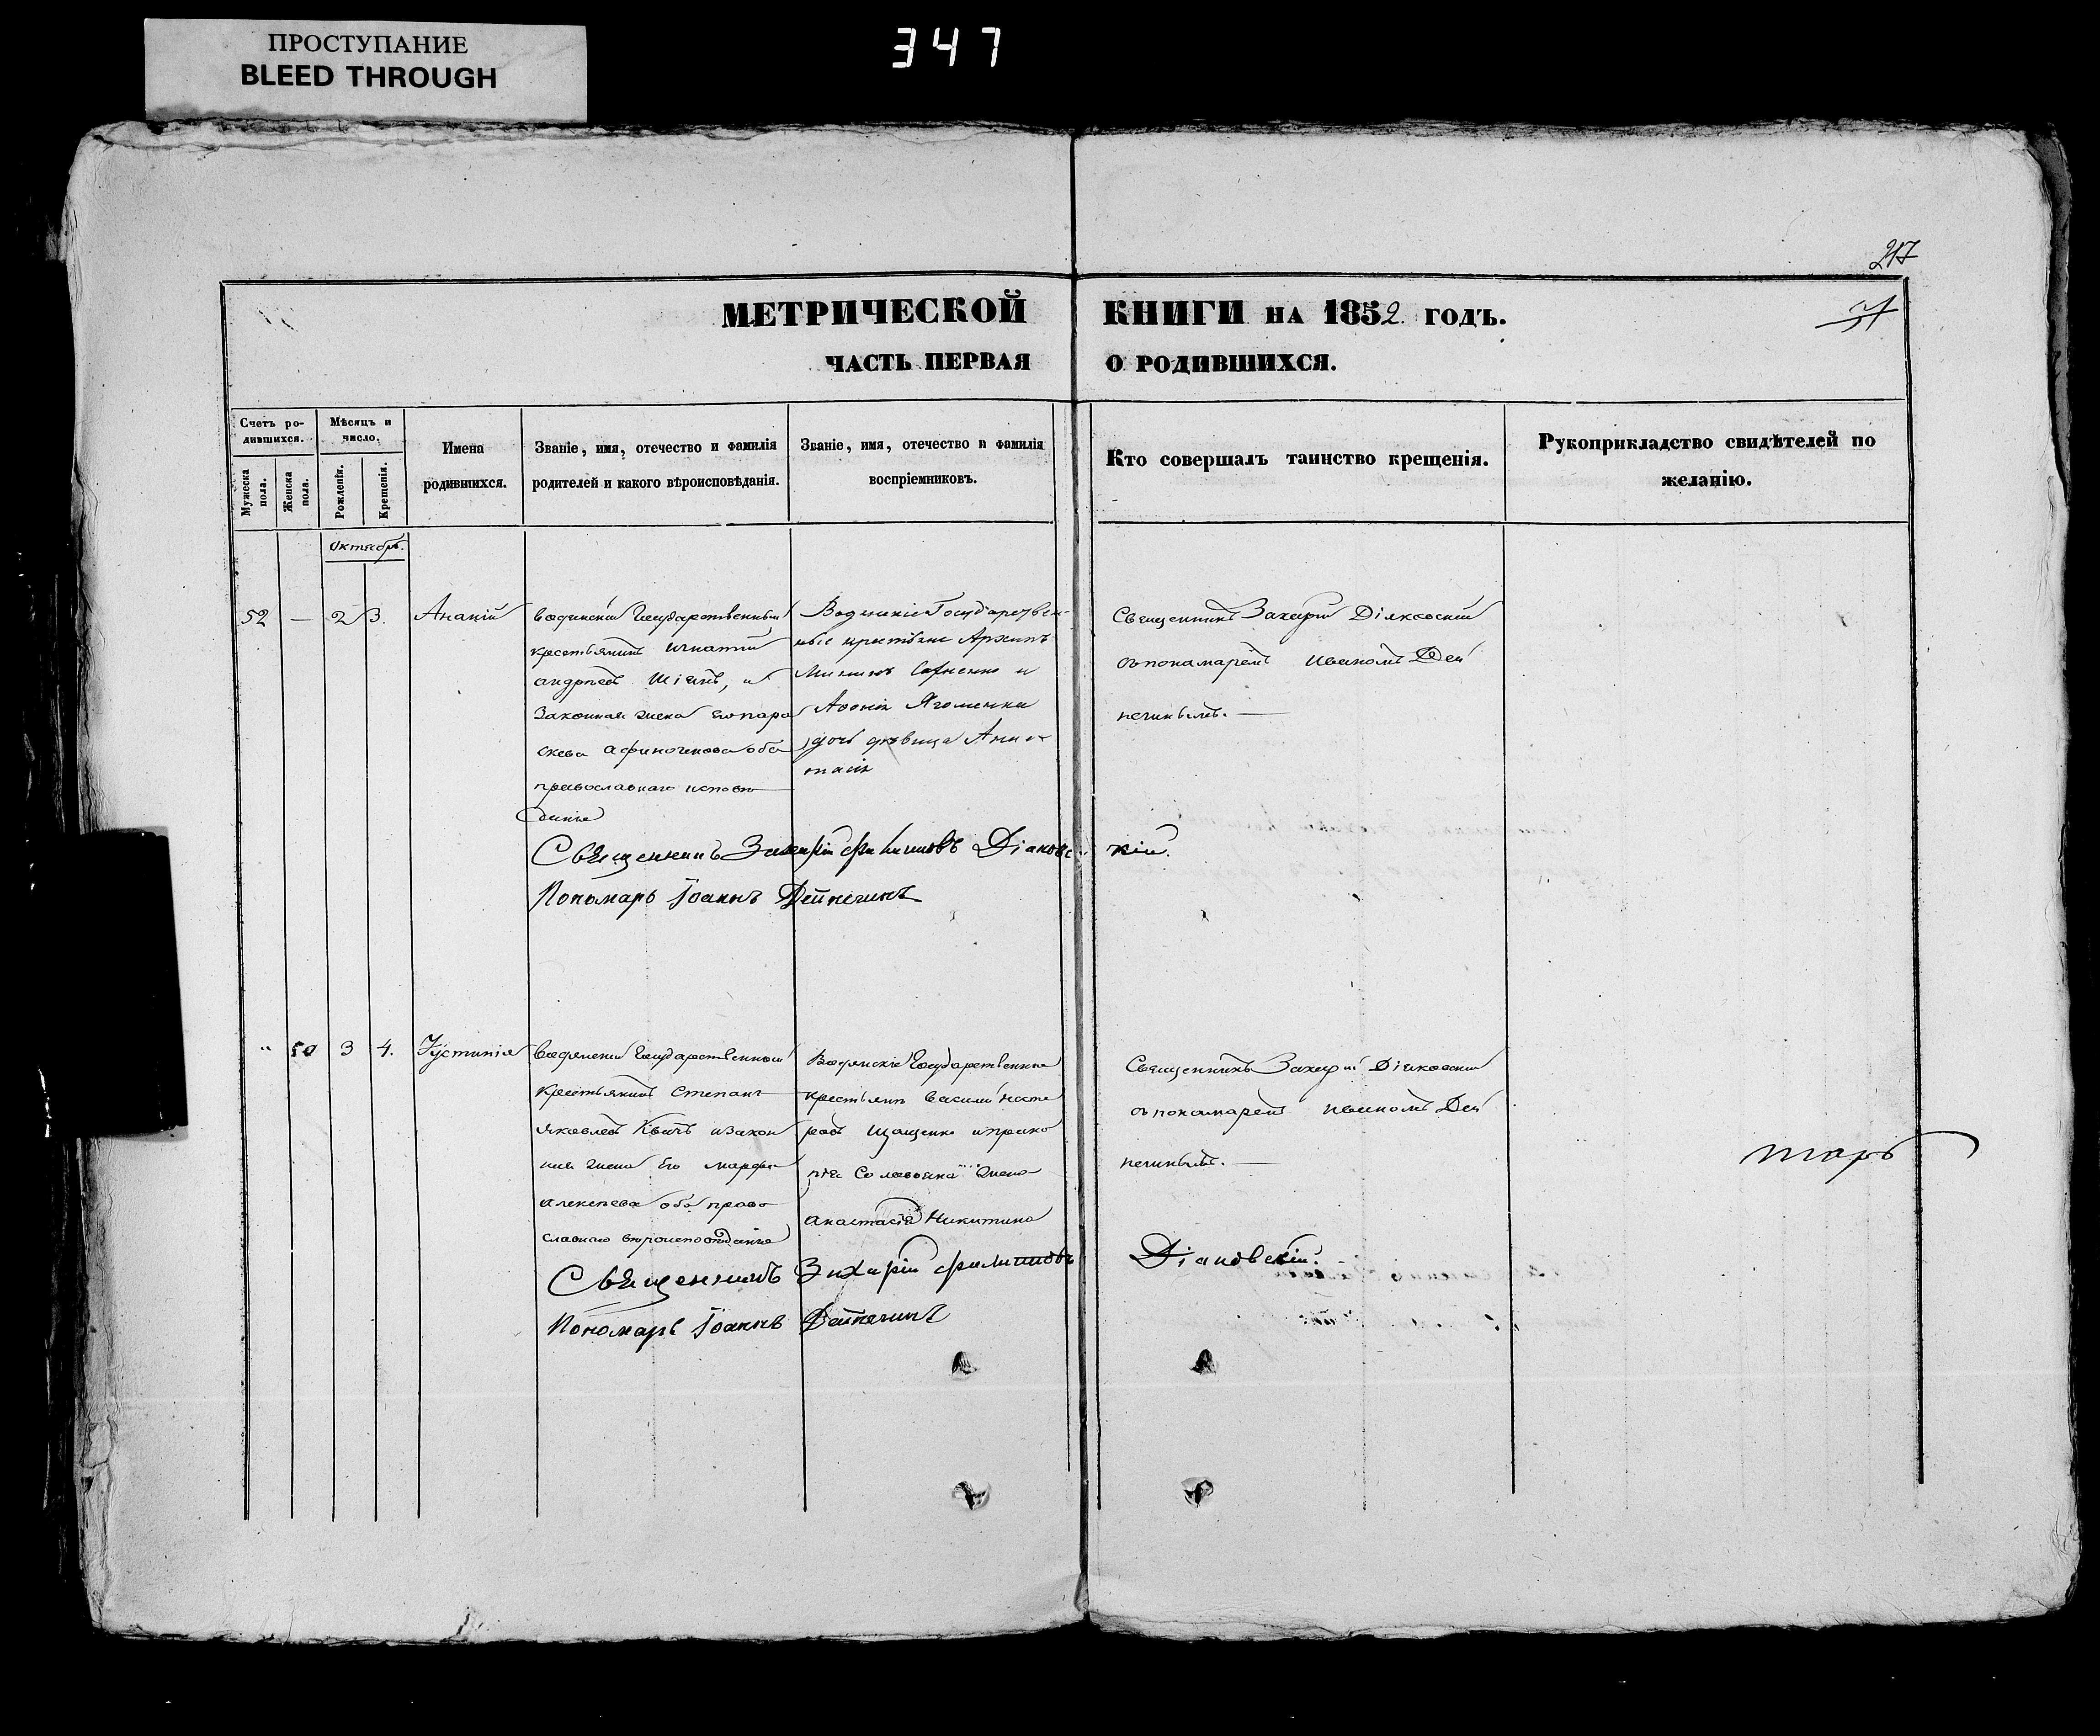 ПРОСТУПАНИЕ
BLEED THROUGH
347
217
МЕТРИЧЕСКОЙ КНИГИ НА 1852 ГОДЪ.
ЧАСТЬ ПЕРВАЯ О РОДИВШИХСЯ.
Счетъ ро-
дившихся.
Мужеска пола.
Женска пола.
Мѣсяцъ и
число.
Рожденія.
Крещенія.
Имена
родившихся.
Званіе, имя, отечество и фамилія
родителей и какого вѣроисповѣданія.
Званіе, имя, отечество и фамилія
воспріемниковъ.
Кто совершалъ таинство крещенія.
Рукоприкладство свидѣтелей по
желанію.
Октябрь.
52 — 2 3. Ананій
Государственный
крестьянинъ Игнатій
андреевъ и
Законная жена его пара
скева оба
православнаго исповѣ
данія
Государствен-
ные крестьяне Архипъ
и
дочь дѣвица Анас
тасія
Священникъ Захарій Діяковскій
съ пономаремъ Иваномъ Дей
нечинымъ. —
Священникъ Захарій Филиповъ Діаковс кій.
Пономарь Іоаннъ Дейнечинъ
" 50 3 4. Іустинія
Государственный
крестьянинъ Степанъ
Яковлевъ и закон
ная жена его марфа
алексѣева оба право
славнаго вѣроисповѣданія
Государственные
крестьяне василій
жена
анастасія Никитина
Священникъ Захарій Діяковскій
съ пономаремъ Иваномъ Дей
нечинымъ. —
тарь
Священникъ Захарій Филиповъ Діаковскій.
Пономарь Іоаннъ Дейнечинъ